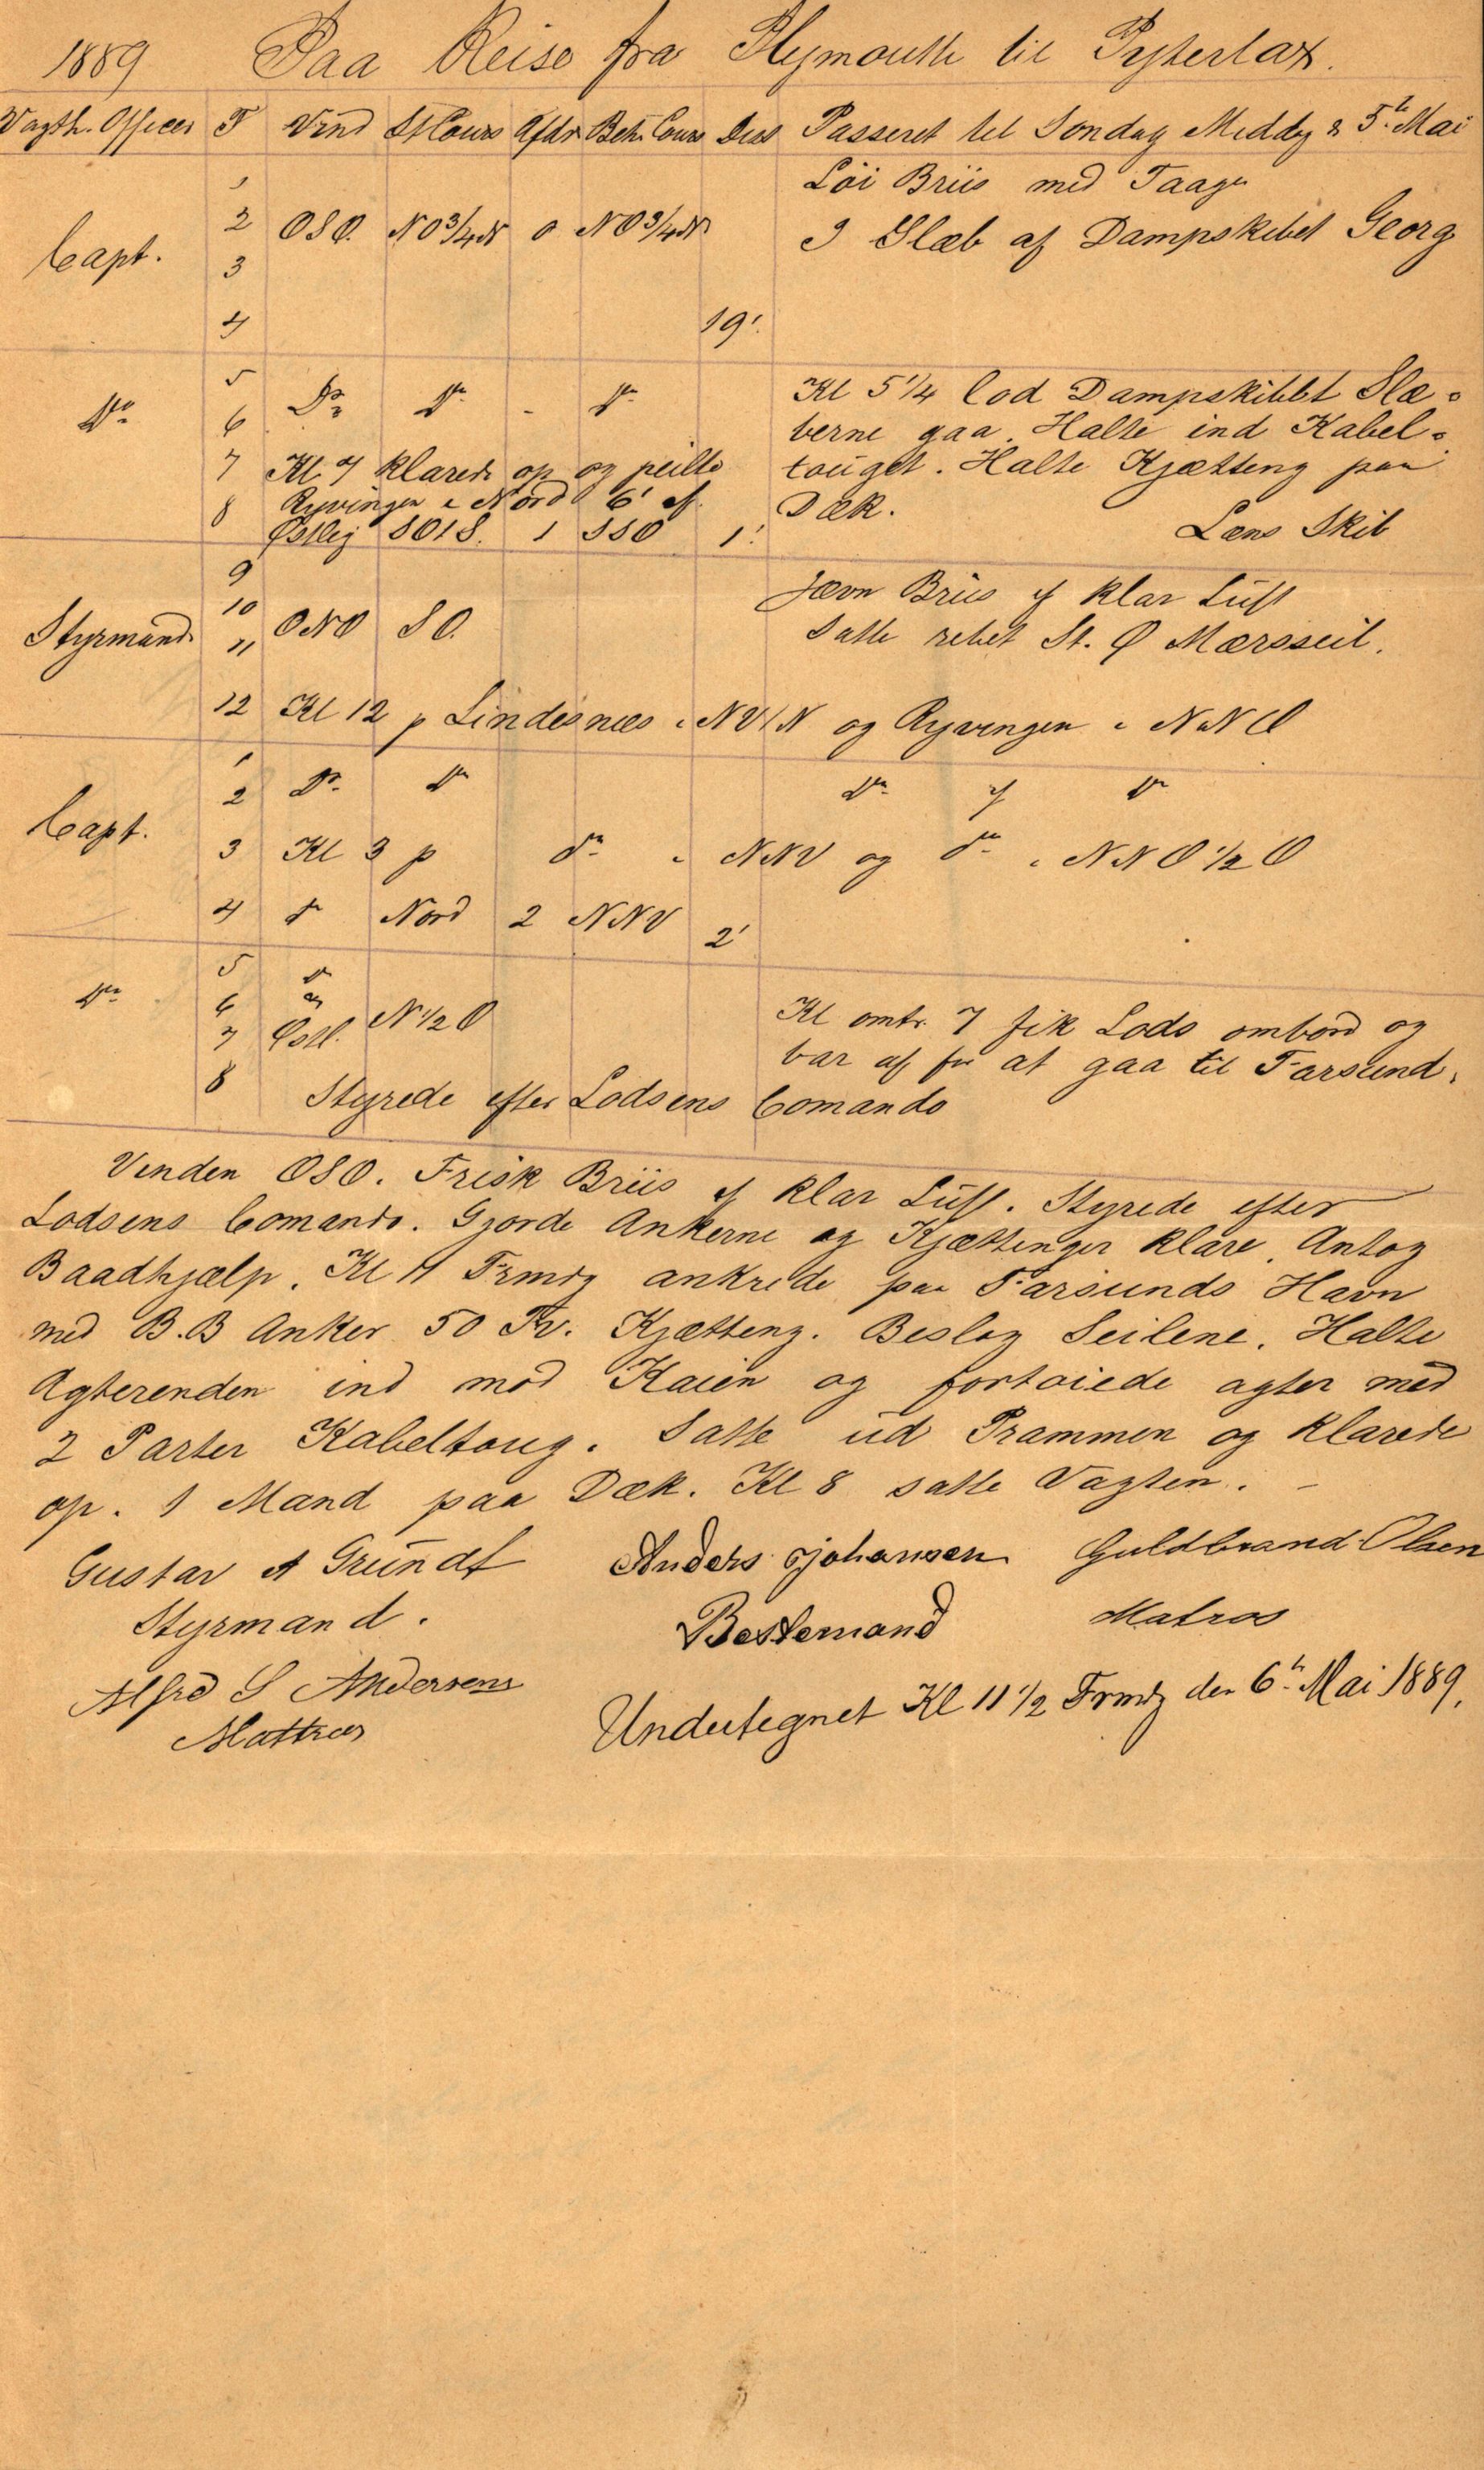 1889 Paa Reise fra Plymouth til Pyterlax.
Vagth. Officer T Vind St Cours Afdr. Beh. Cours Dist Passeret til Søndag Middg d 5te Mai
1 Löi Briis med Taage
Capt. 2 OSO. NO 3/4 N 0 NO 3/4 N I Slæb af Dampskibet Georg
3
4 19'.
5 Kl 5 1/4 lod Dampskibet Slæ-
Do 6 Do Do - Do berne gaa. Halte ind Kabel-
7 Kl 7 klarede op og peilte touget. Halte Kjætting paa
8 Ryvingen i Nord 6' af. Dæk.
Østlig SO1S. 1 SSO 1'. Læns Skib
9 Jævn Briis & klar Luft
10 Satte rebet St. & Mærsseil.
Styrmand. 11 ONO SO.
12 Kl 12 p Lindesnæs i NV1N og Ryvingen i NNO
1
Capt. 2 Do. Do Do & Do
3 Kl 3 p do i NNV og do i NNO 1/2 O
4 do Nord 2 NNV 2'
5 do
Do 6 N 1/2 O Kl omtr. 7 fik Lods ombord og
7 Østl. bar af for at gaa til Farsund.
8 Styrede efter Lodsens Comando
Vinden OSO. Frisk Briis & klar Luft. Styrede efter
Lodsens Comando. Gjorde Ankerne og Kjættinger klare. Antog
Baadhjælp. Kl 11 Frmdg ankrede paa Farsunds Havn
med B.B Anker 50 Fv. Kjætting. Beslog Seilene. Halte
Agterenden ind mod Kaien og fortøiede agter med
2 Parter Kabeltoug. Satte ud Prammen og klarede
op. 1 Mand paa Dæk. Kl 8 satte Vagten. –
Gustav A Grundt Anders Johansen Guldbrand Olsen
Styrmand. Bestemand Matros
Alfred S Andersen
Mattros
Undertegnet Kl 11 1/2 Frmdg den 6te Mai 1889.